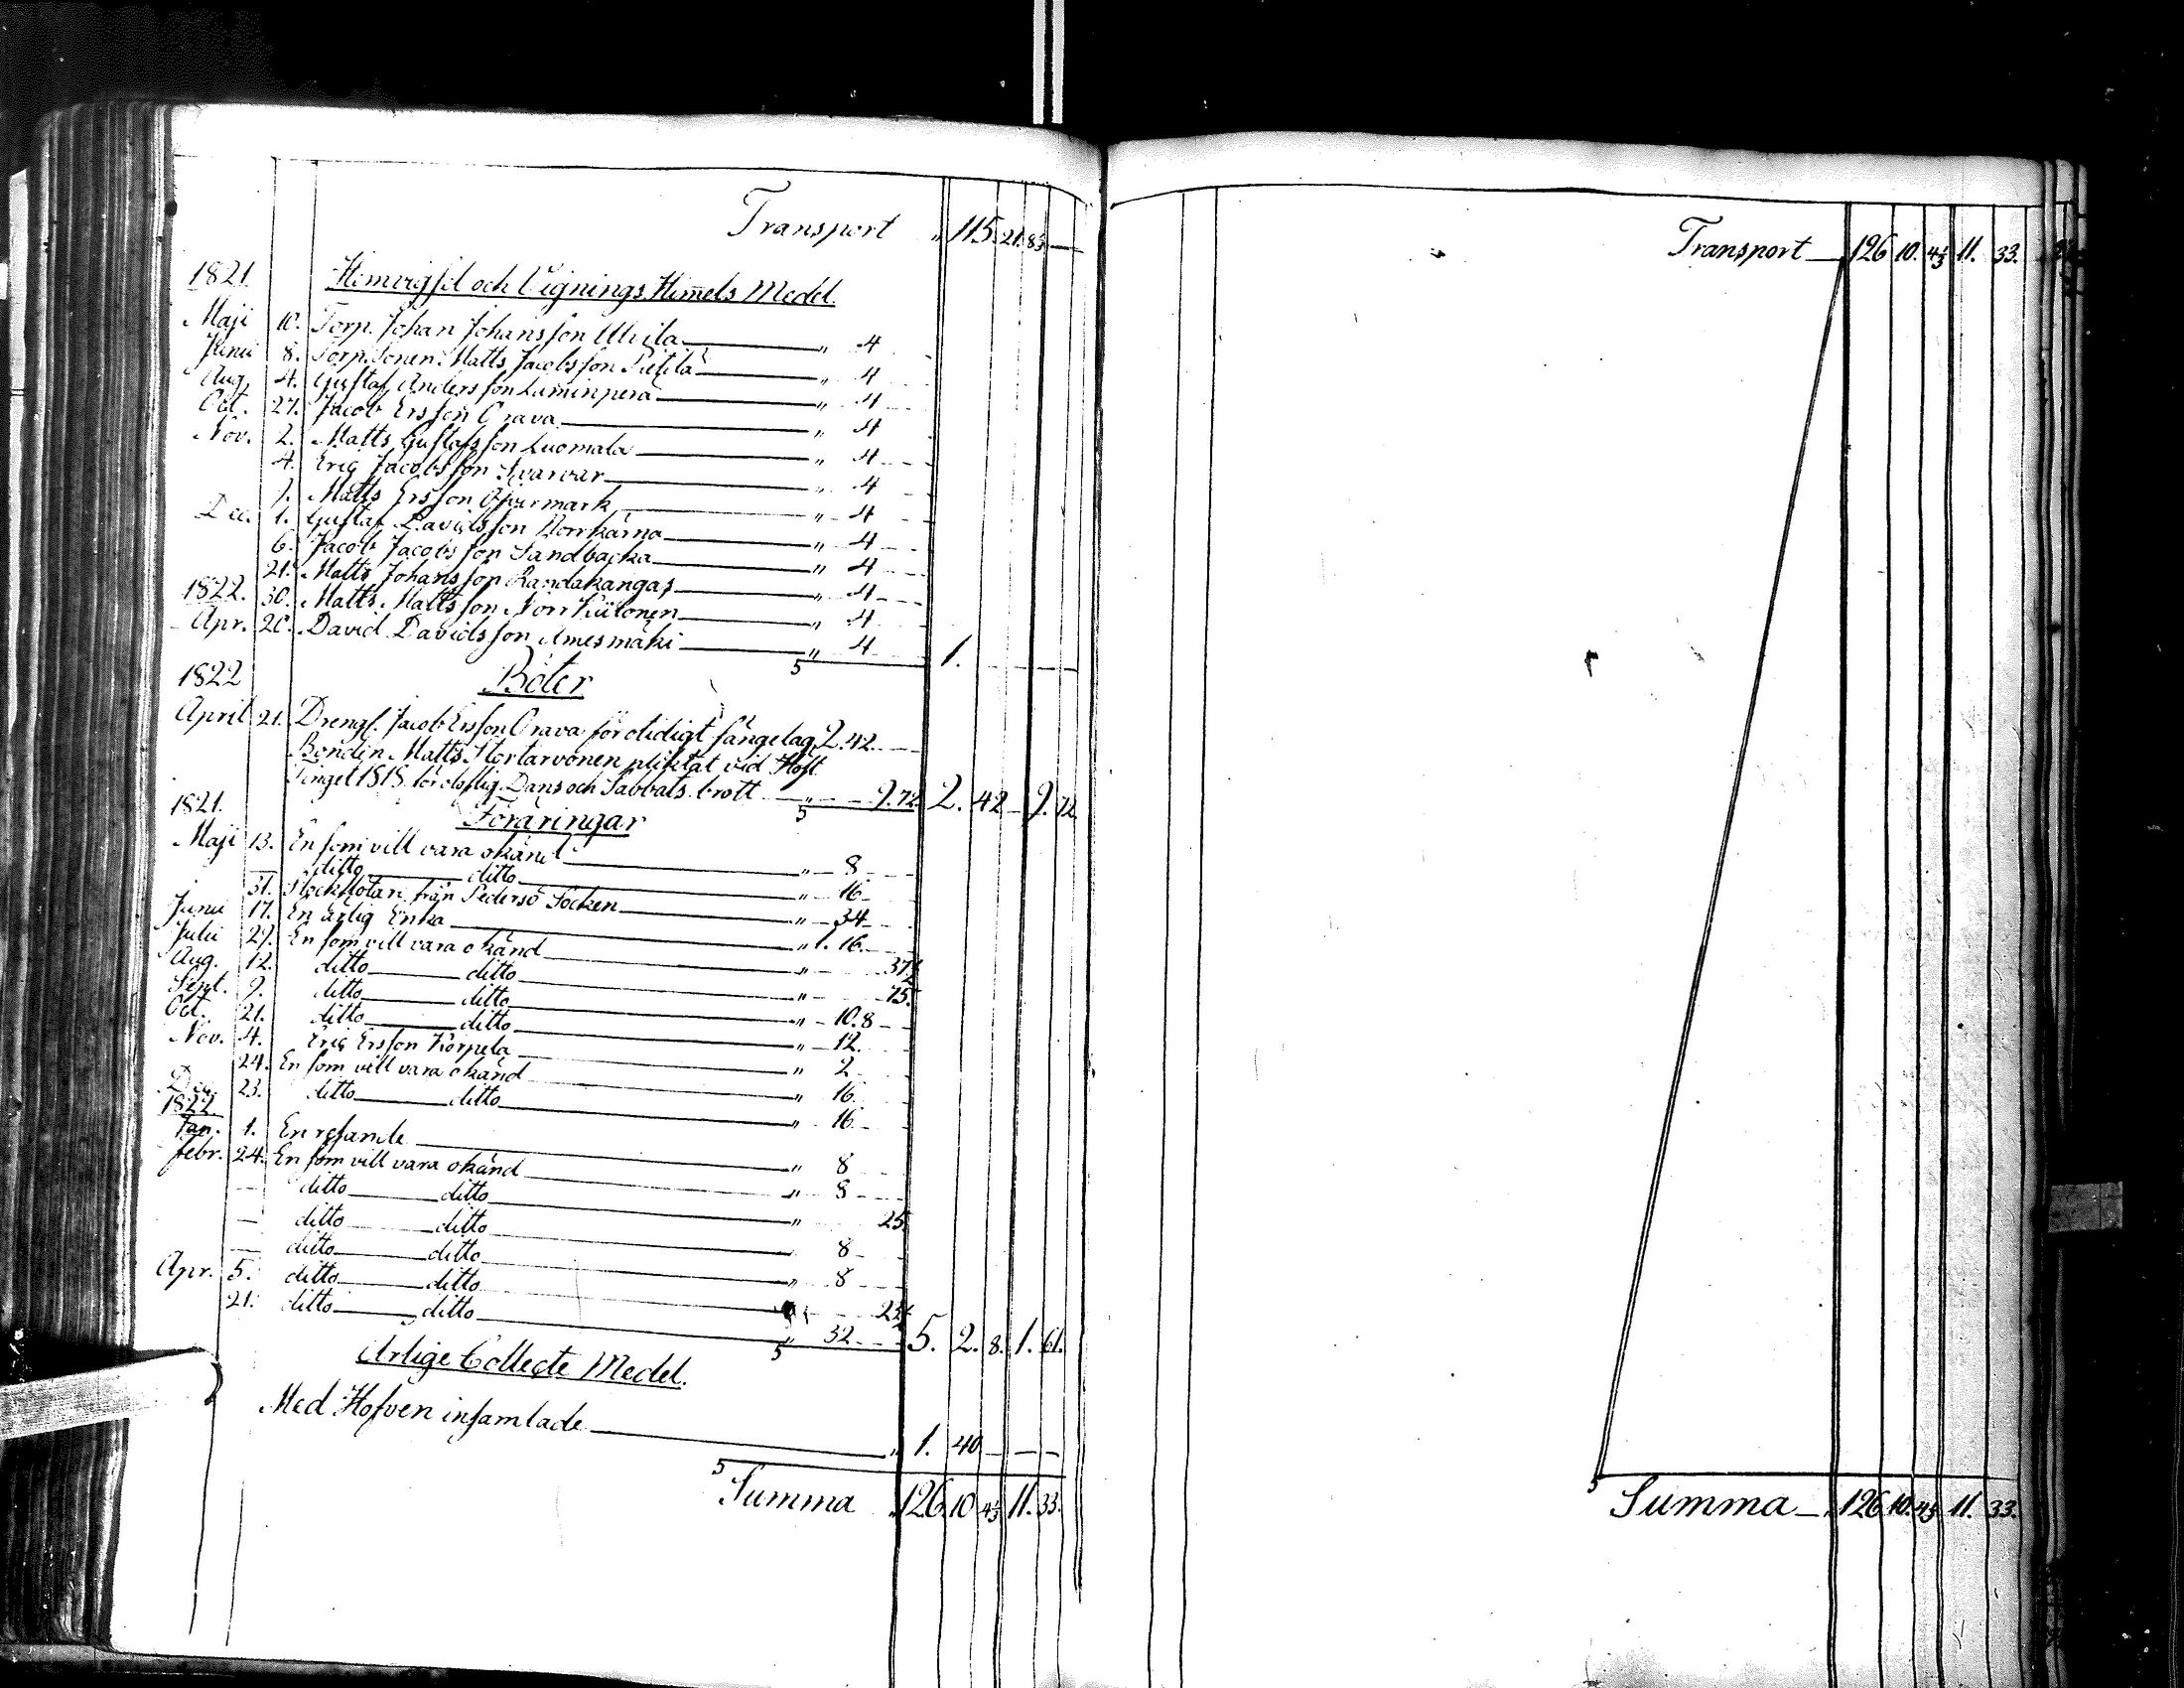 Transport " 115. 21. 8⅓ —
1821. Hemvigsel och Vignings Himmels Medel.
Maji 10. Torp. Johan Johansson " 4
Junii 8. Torp. Sonen Matts Jacobsson Pietilä " 4
Aug. 4. Gustaf Andersson Luminperä " 4
Oct. 27. Jacob Ersson Orava " 4
Nov. 2. Matts Gustafsson Luomala " 4
4. Eric Jacobsson Svarvar " 4
7. Matts Ersson Öfvermark " 4
Dec. 1. Gustaf Davidsson Norrkärna " 4
6. Jacob Jacobsson Sandbacka " 4
21. Matts Johansson Randakangas " 4
1822. 30. Matts Mattsson Norr Külonen " 4
Apr. 20. David Davidsson Ämesmäki " 4
5 1. —
1822 Böter
April 21. Drengs. Jacob Ersson Orava för otidigt sängelag 2. 42. —
Bonden Matts Stortarvonen pliktat vid Höst
Tinget 1818 för olaflig Dans och Sabbats brott " — 9. 72. 2. 42 — 9. 72.
1821. Föräringar
Maji 13. En som vill vara okänd " — 8
— ditto ditto " — 16
31. Stockflötare från Pedersö Socken " — 34
Junii 17. En ärlig Enka " 1. 16.
Julii 29. En som vill vara okänd " — 37½
Aug. 12. ditto ditto " — 75.
Sept. 9. ditto ditto " — 10. 8 —
Oct. 21. ditto ditto " — 12.
Nov. 4. Eric Ersson Korpela " 2
24. En som vill vara okänd " 16.
Dec. 23. ditto ditto " 16.
1822
Jan. 1. En resande " 8
Febr. 24. En som vill vara okänd " 8
— ditto ditto " 25
— ditto ditto " 8
— ditto ditto " 8
Apr. 5. ditto ditto 23½
21. ditto ditto " 32 5. 2. 8. 1. 61.
5
Årlige Collecte Medel.
Med Hofven insamlade " 1. 40 — — —
5 Summa " 126. 10 4⅓ 11. 33.
Transport — 126 10. 4⅓ 11. 33.
5 Summa — " 126 10. 4⅓ 11. 33.